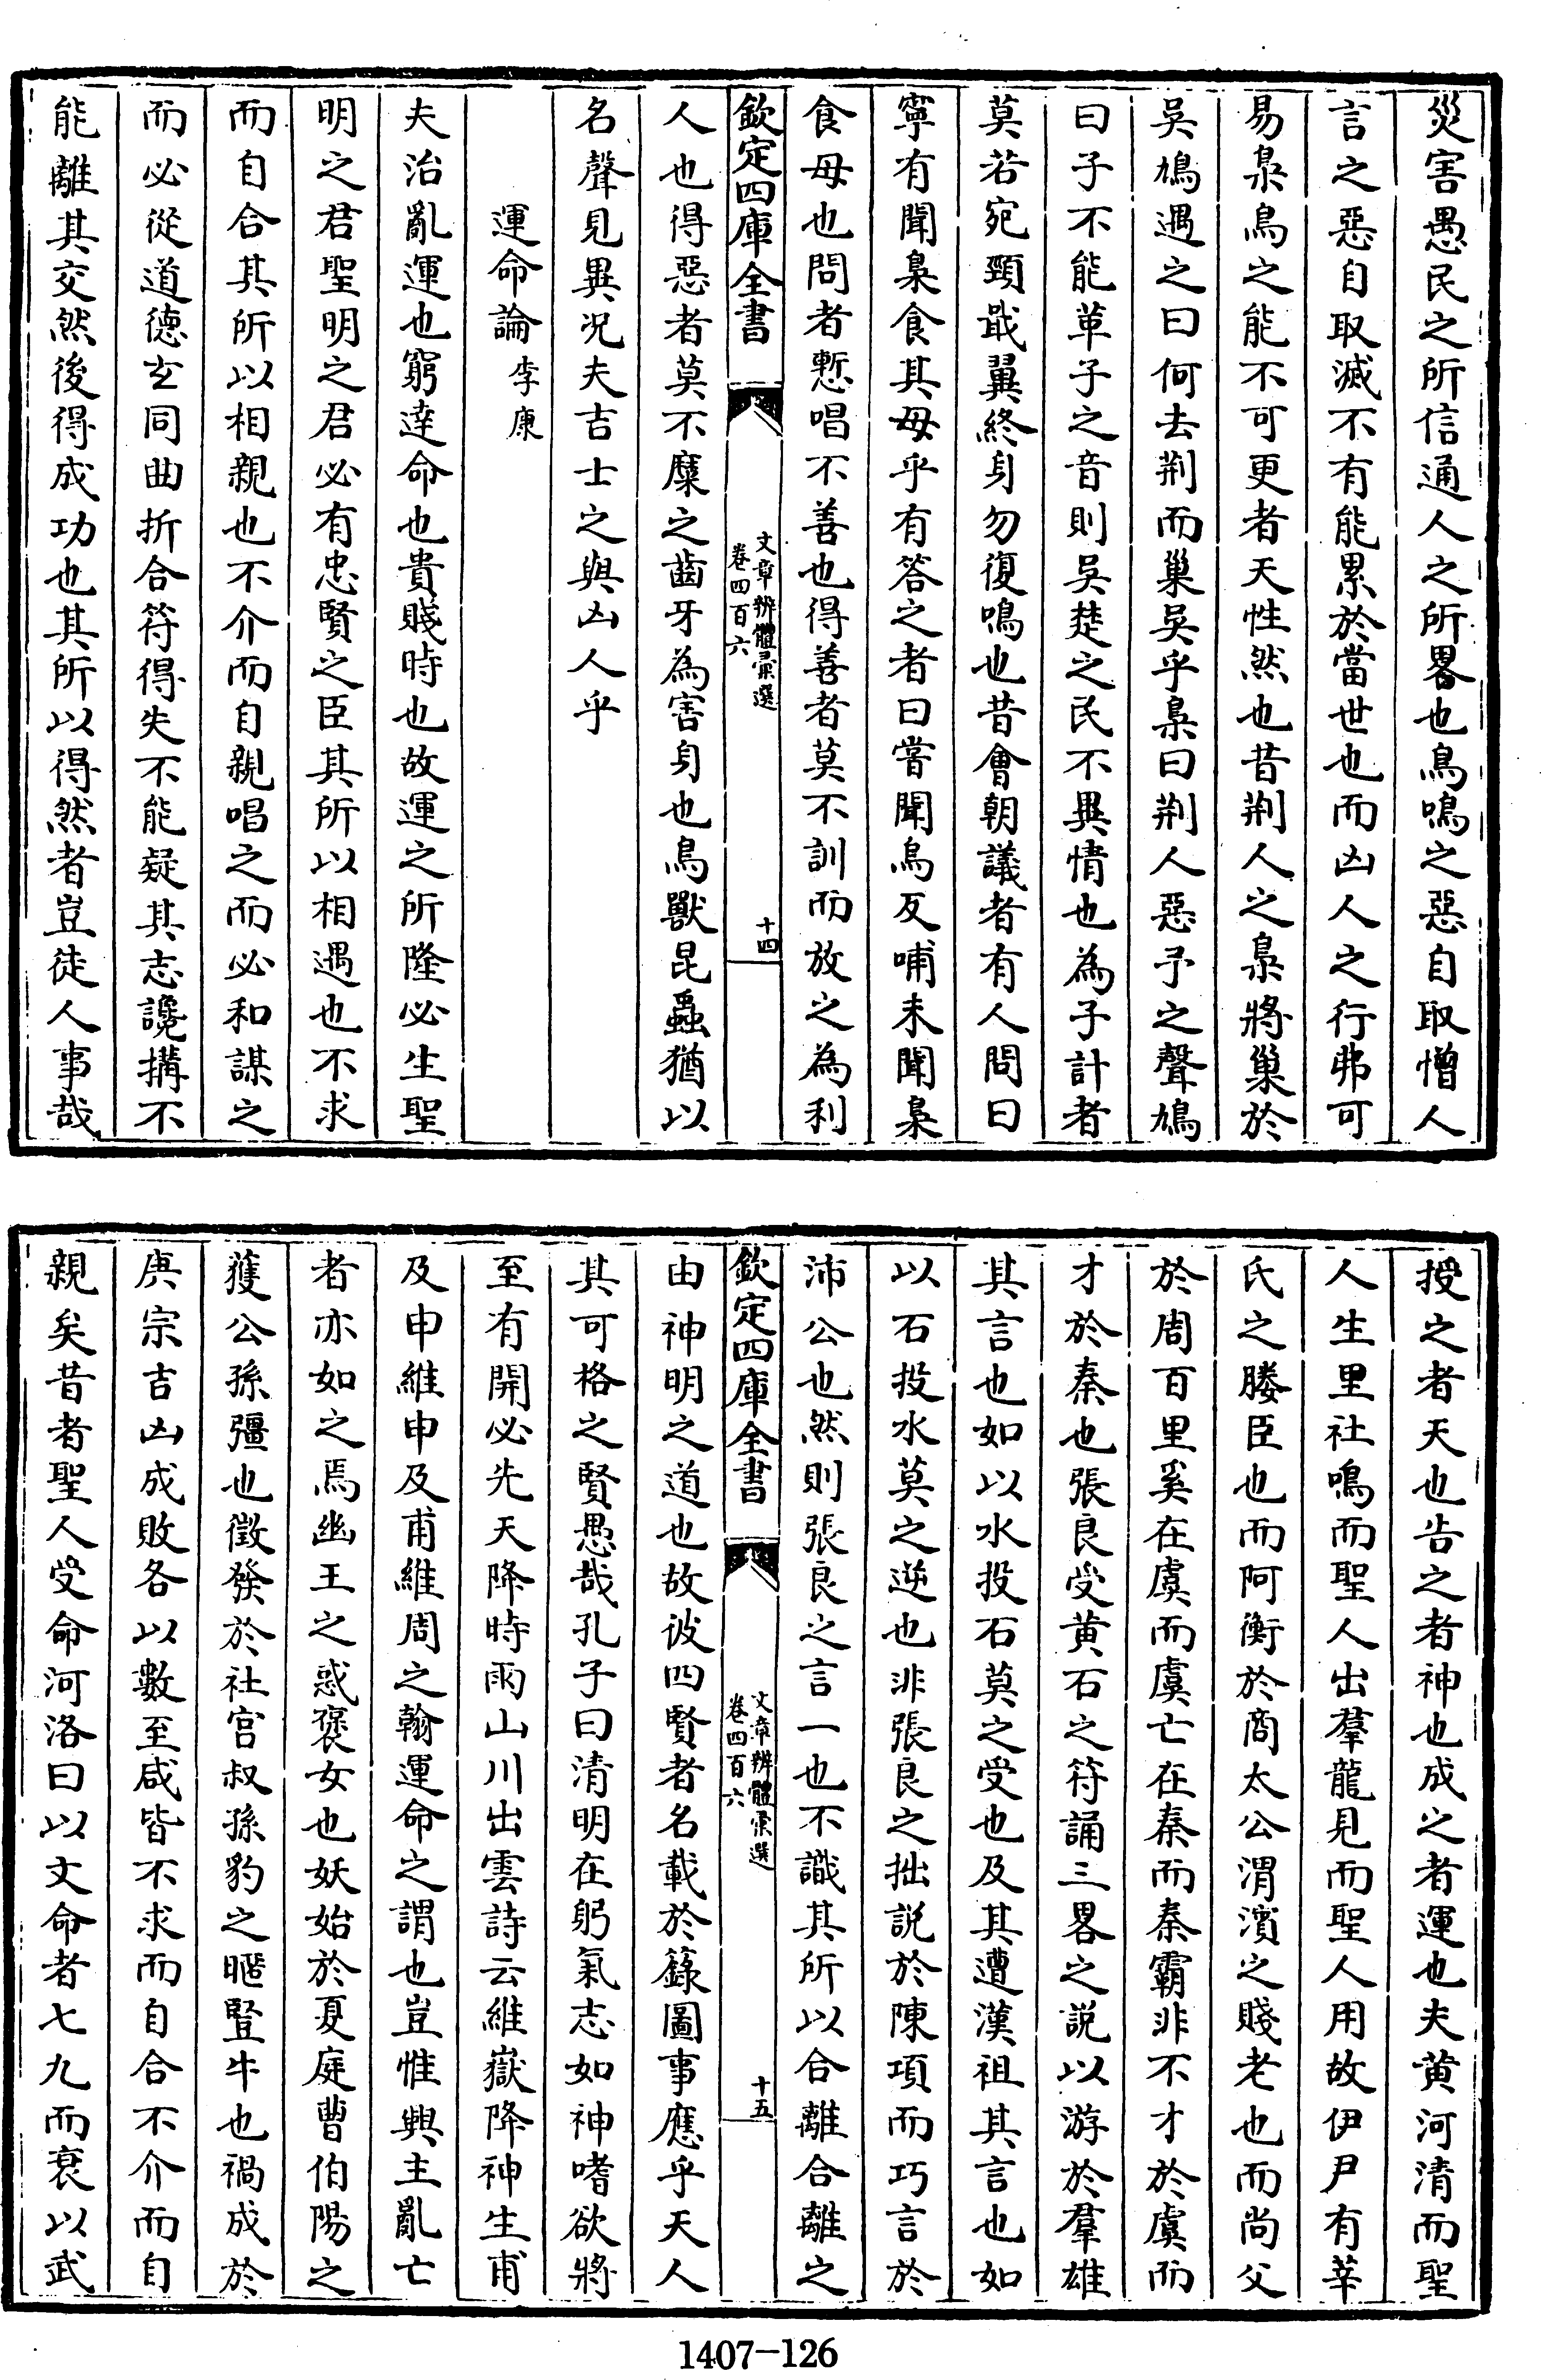 災害愚民之所信通人之所畧也鳥鳴之惡自取憎人
言之惡自取滅不有能累於當世也而凶人之行弗可
易梟鳥之能不可更者天性然也昔荆人之梟將巢於
吳鳩遇之曰何去荆而巢吳乎梟曰荆人惡予之聲鳩
曰子不能革子之音則吳楚之民不異情也為子計者
莫若宛頸戢翼終身勿復鳴也昔會朝議者有人問曰
寧有聞梟食其母乎有答之者曰嘗聞烏反哺未聞梟
食母也問者慙唱不善也得善者莫不訓而放之為利
欽定四庫全書
文章辨體彚選
卷四百六
十四
人也得惡者莫不糜之齒牙為害身也鳥獸昆蟲猶以
名聲見異况夫吉士之與凶人乎
運命論李康
夫治亂運也窮逹命也貴賤時也故運之所隆必生聖
明之君聖明之君必有忠賢之臣其所以相遇也不求
而自合其所以相親也不介而自親唱之而必和謀之
而必從道德玄同曲折合符得失不能疑其志讒搆不
能離其交然後得成功也其所以得然者豈徒人事哉
授之者天也告之者神也成之者運也夫黄河清而聖
人生里社鳴而聖人出羣龍見而聖人用故伊尹有莘
氏之媵臣也而阿衡於商太公渭濱之賤老也而尚父
於周百里奚在虞而虞亡在秦而秦霸非不才於虞而
才於秦也張良受黄石之符誦三畧之説以游於羣雄
其言也如以水投石莫之受也及其遭漢祖其言也如
以石投水莫之逆也非張良之拙説於陳項而巧言於
沛公也然則張良之言一也不識其所以合離合離之
欽定四庫全書
文章辨體彚選
卷四百六
十五
由神明之道也故彼四賢者名載於籙圖事應乎天人
其可格之賢愚哉孔子曰清明在躬氣志如神嗜欲將
至有開必先天降時雨山川出雲詩云維嶽降神生甫
及申維申及甫維周之翰運命之謂也豈惟興主亂亡
者亦如之焉幽王之惑褒女也妖始於夏庭曹伯陽之
獲公孫彊也徵發於社宫叔孫豹之暱豎牛也禍成於
庚宗吉凶成敗各以數至咸皆不求而自合不介而自
親矣昔者聖人受命河洛曰以文命者七九而衰以武
1407-126